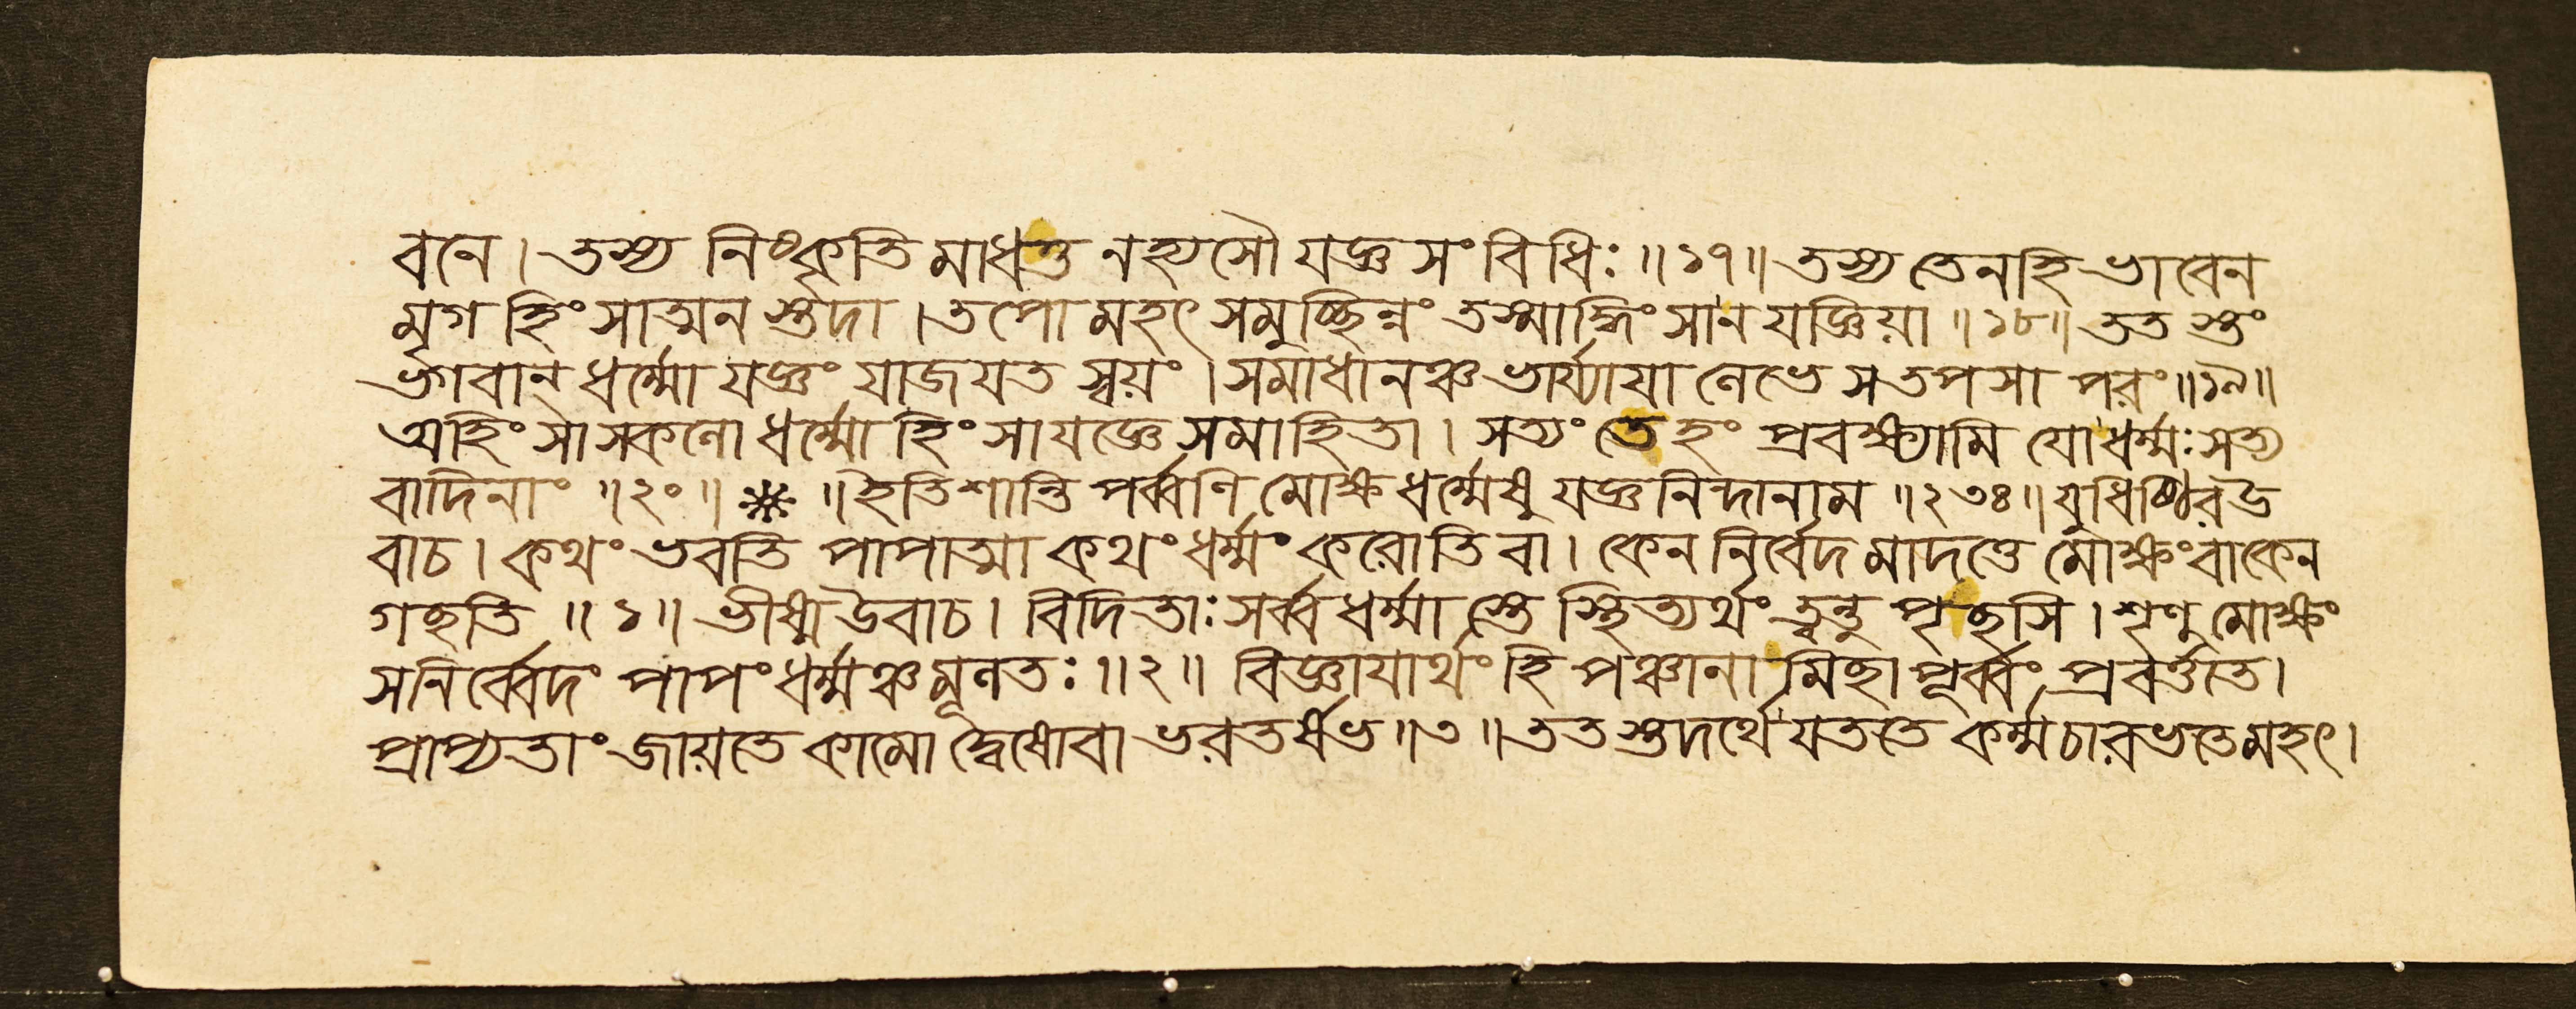 বনে । তস্য নিষ্কৃতি মাধত্ত নহ্যসৌ যজ্ঞ সংবিধিঃ ॥ ১৭ ॥ তস্য তেনহি ভাবেন
মৃগ হিংসাত্মন স্তদা । তপো মহৎ সমুচ্ছিন্নং তস্মাদ্ধিংসান যজ্ঞিয়া ॥ ১৮ ॥ তত স্তং
ভগবান্ ধর্ম্মো যজ্ঞং যাজযত স্বয়ং । সমাধানঞ্চ ভার্য্যাযা লেভে সতপসা পরং ॥ ১৯ ॥
অহিংসা সকলো ধর্ম্মো হিংসা যজ্ঞে সমাহিতা । সত্যং তেহং প্রবক্ষ্যামি যোধর্ম্মঃ সত্য
বাদিনাং ॥ ২০ ॥ ॥ ইতি শান্তি পর্ব্বণি মোক্ষ ধর্ম্মেষু যজ্ঞনিন্দানাম ॥ ২৩৪ ॥ যুধিষ্ঠিরউ
বাচ । কথং ভবতি পাপাত্মা কথং ধর্ম্মং করোতি বা । কেন নির্বেদ মাদত্তে মোক্ষং বাকেন
গচ্ছতি ॥ ১ ॥ ভীষ্ম উবাচ । বিদিতাঃ সর্ব্ব ধর্ম্মা স্তে স্থিত্যর্থং ত্বন্তু পৃচ্ছসি । শৃণু মোক্ষং
সনির্ব্বেদং পাপং ধর্ম্মঞ্চ মূলতঃ ॥ ২ ॥ বিজ্ঞাযার্থং হি পঞ্চানা মিচ্ছা পূর্ব্বং প্রবর্ত্ততে ।
প্রাপ্যতাং জায়তে কামো দ্বেষোবা ভরতর্ষভ ॥ ৩ ॥ তত স্তদর্থে যততে কর্ম্ম চারভতে মহৎ ।